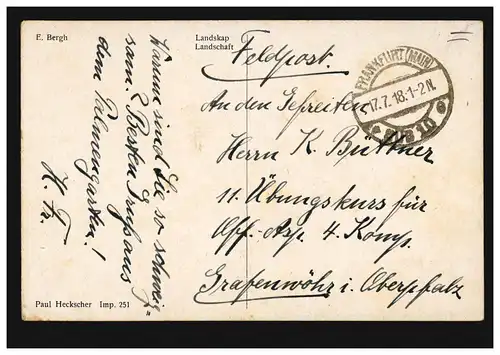 E. Bergh
Landskap
Landschaft
Feldpost.
FRANKFURT (MAIN)
17.7.18.1-2N.
An den Gefreiten
Herrn K. Büttner
11. Übungskurs für
Off.-Asp. 4. Komp.
Grafenwöhr i. Oberpfalz
Warum sind Sie so schweig„
sam? Besten Gruß aus
dem Palmengarten!
H. Fr.
Paul Heckscher Imp. 251